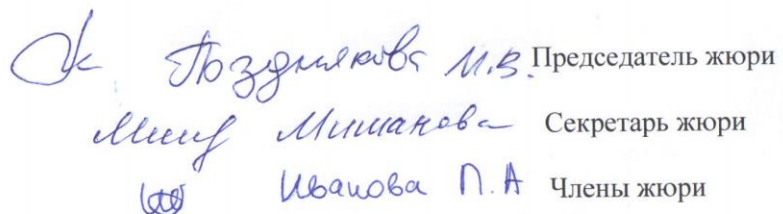 Позднякова М.В. Председатель жюри
Мишанова Секретарь жюри
Иванова П.А Члены жюри